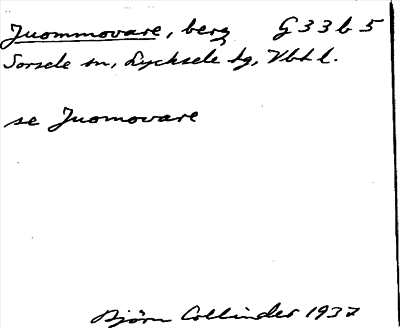 Juommovare, berg G 33 b 5
Sorsele sn, Lycksele tg, Vbtl.
se Juomovare
Björn Collinder 1937